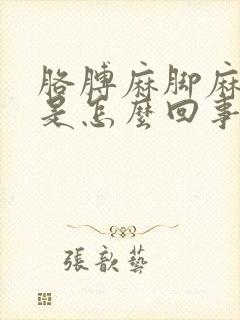 胳膊麻脚麻
是怎麼回事
張歆藝